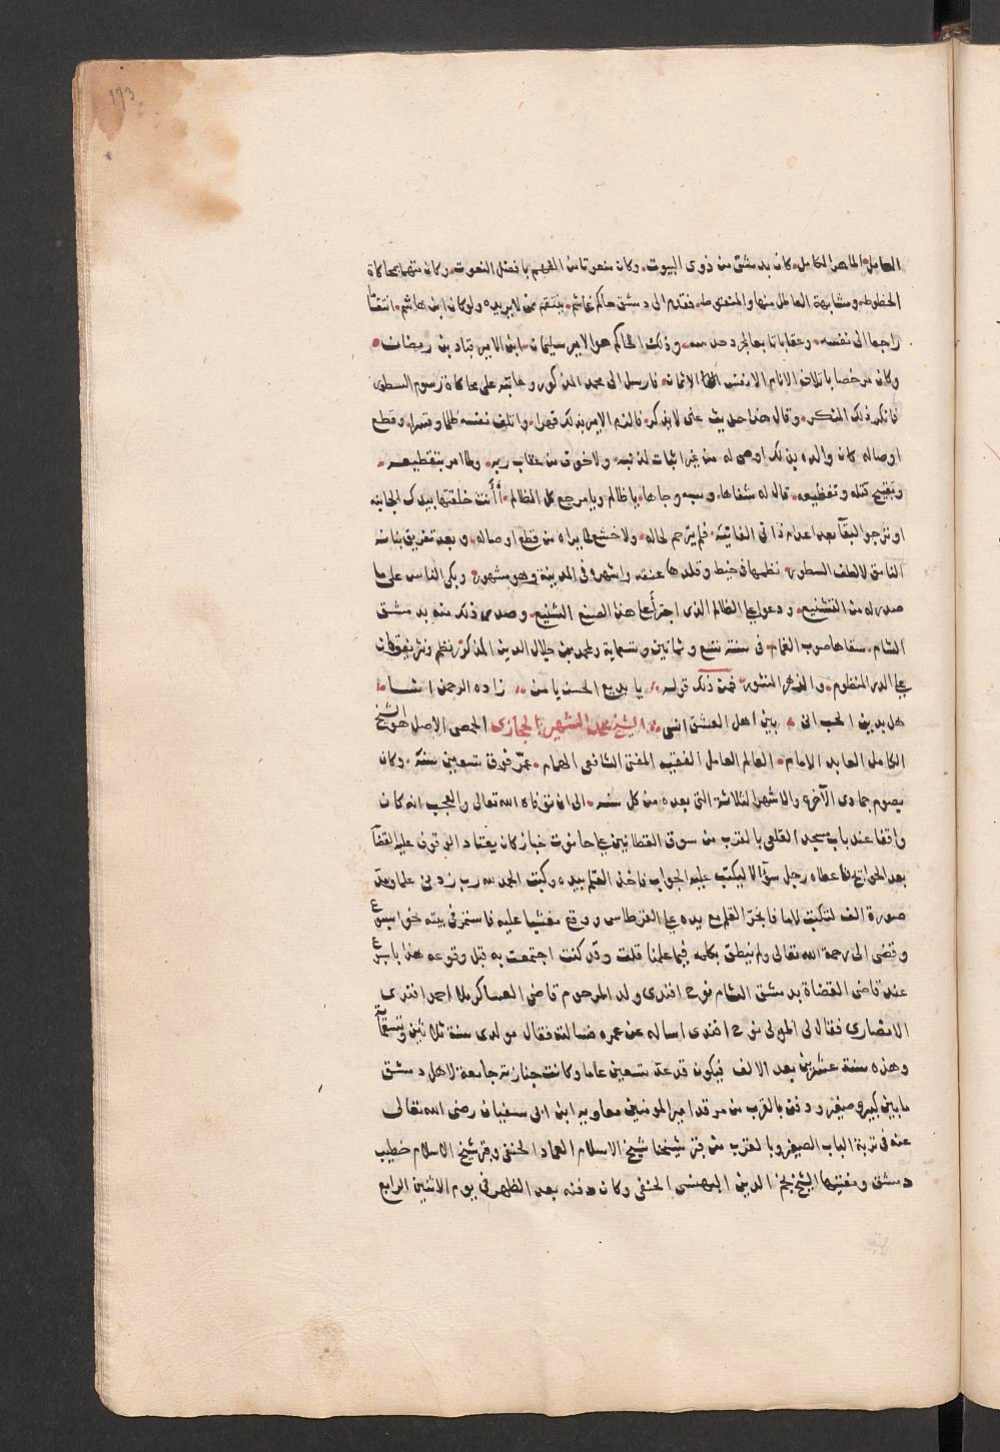 ١٧٣
العامل الماهر الكامل. كان بدمشق من ذوى البيوت. وكان منعوتا من الفهم بافضل النعوت. وكان متهما بمحاكاة
الخطوط. ومشابهة العاطل منها والمنقوط. فقدم الى دمشق حاكم غاشم. ينتقم من لا يريده ولو كان ابن هاشم. انتقا
راجعا الى نفسه. وعقابا تابعا لمجرد حدسه. وذلك الحاكم هو الامير سليمان. ابن الامير قباد بن رمضان.
وكان مرخصا باتلاف الانام الانفس الاثمان. فارسل الى محمد المذكور وعاتبه على محاكاة رسوم السطور
فانكر ذلك المنكر. وقال هذا حديث عنى لا يذكر. فالزم الامير بذلك قهرا. واتلف نفسه ظلما وقسرا. وقطع
اوصاله كان والده بذلك اوصى له من غير اثبات لذنبه. ولا خوف من عقاب ربه. ولما امر بتقطيعه.
وتقبيح قتله وتفظيعه. قال له شفاها. وسبه وجاها. يا ظالم ويا مرجع كل المظالم. أأنت خلقتها بيدك الجانيه
او ترجو البقآ بعد اعدام ذاتى الفانية. فلم يرحم لحاله. ولا خشع لما يراه من قطع اوصاله. وبعد تفريق بنانه
الناسق لالطف السطور. نظمها فى خيط وقلدها عنقه واشهره فى المدينة وهو مشهور. وبكى الناس على ما
صدر له من التشنيع. ودعوا على الظالم الذى اجترأ على هذا الصنع الشنيع. وصدر ذلك منه بدمشق
الشام. سقاها صوب الغمام. فى سنة تسع وثمانين وتسماية ولمحمد بن جلال الدين المذكور نظم ونثر يفوقان
على الدر المنظوم. والزهر المنثور. فمن ذلك قوله يا بديع الحسن يا من زاده الرحمن انسا
هل بدين الحب انى بين اهل العشق انسى الشيخ محمد الشهير بالحجازى الحمصى الاصل هو الشيخ
الكامل العابد الامام. العالم العامل الفقيه المفتى الشافعى الهمام. عمّر فوق تسعين سنة. وكان
يصوم جمادى الآخره والاشهر الثلاثة التى بعده من كل سنه. الى ان توفاه الله تعالى والعجب انه كان
واقفا عند باب مسجد القلعى بالقرب من سوق القطانين على حانوت خباز كان يعتاد الوقوف عليه لقضآ
بعد الحوايج فاعطاه رجل سؤالا ليكتب عليه الجواب فاخذ القلم بيده وكتب الحمد لله رب زدنى علما ومدّ
صورة الف لتكتب لاما فانجرّ القلم مع يده على القرطاس ووقع مغشيا عليه فاستمر فى بيته نحو اسبوع
وقضى الى رحمة الله تعالى ولم ينطق بكلمه فيما علمنا قلت وقد كنت اجتمعت به قبل وقوعه هذا باسبوع
عند قاضى القضاة بدمشق الشام نوح افندى ولد المرحوم قاضى العساكر ملا احمد افندى
الانصارى فقال لى المولى نوح افندى اساله عن عمره فسالته فقال مولدى سنة ثلاثين وتسعمآ
وهذه سنة عشرين بعد الالف فيكون قد عد تسعين عاما وكانت جنازته جامعة لاهل دمشق
ما بين كبير وصغير ودفن بالقرب من مرقد امير المومنين معاويه ابن ابى سفيان رضى الله تعالى
عنه فى تربة الباب الصغير وبالقرب من قبر شيخنا شيخ الاسلام العماد الحنفى وقبر شيخ الاسلام خطيب
دمشق ومفتيها الشيخ نجم الدين البهنسى الحنفى وكان دفنه بعد الظهر فى يوم الاثنين الرابع